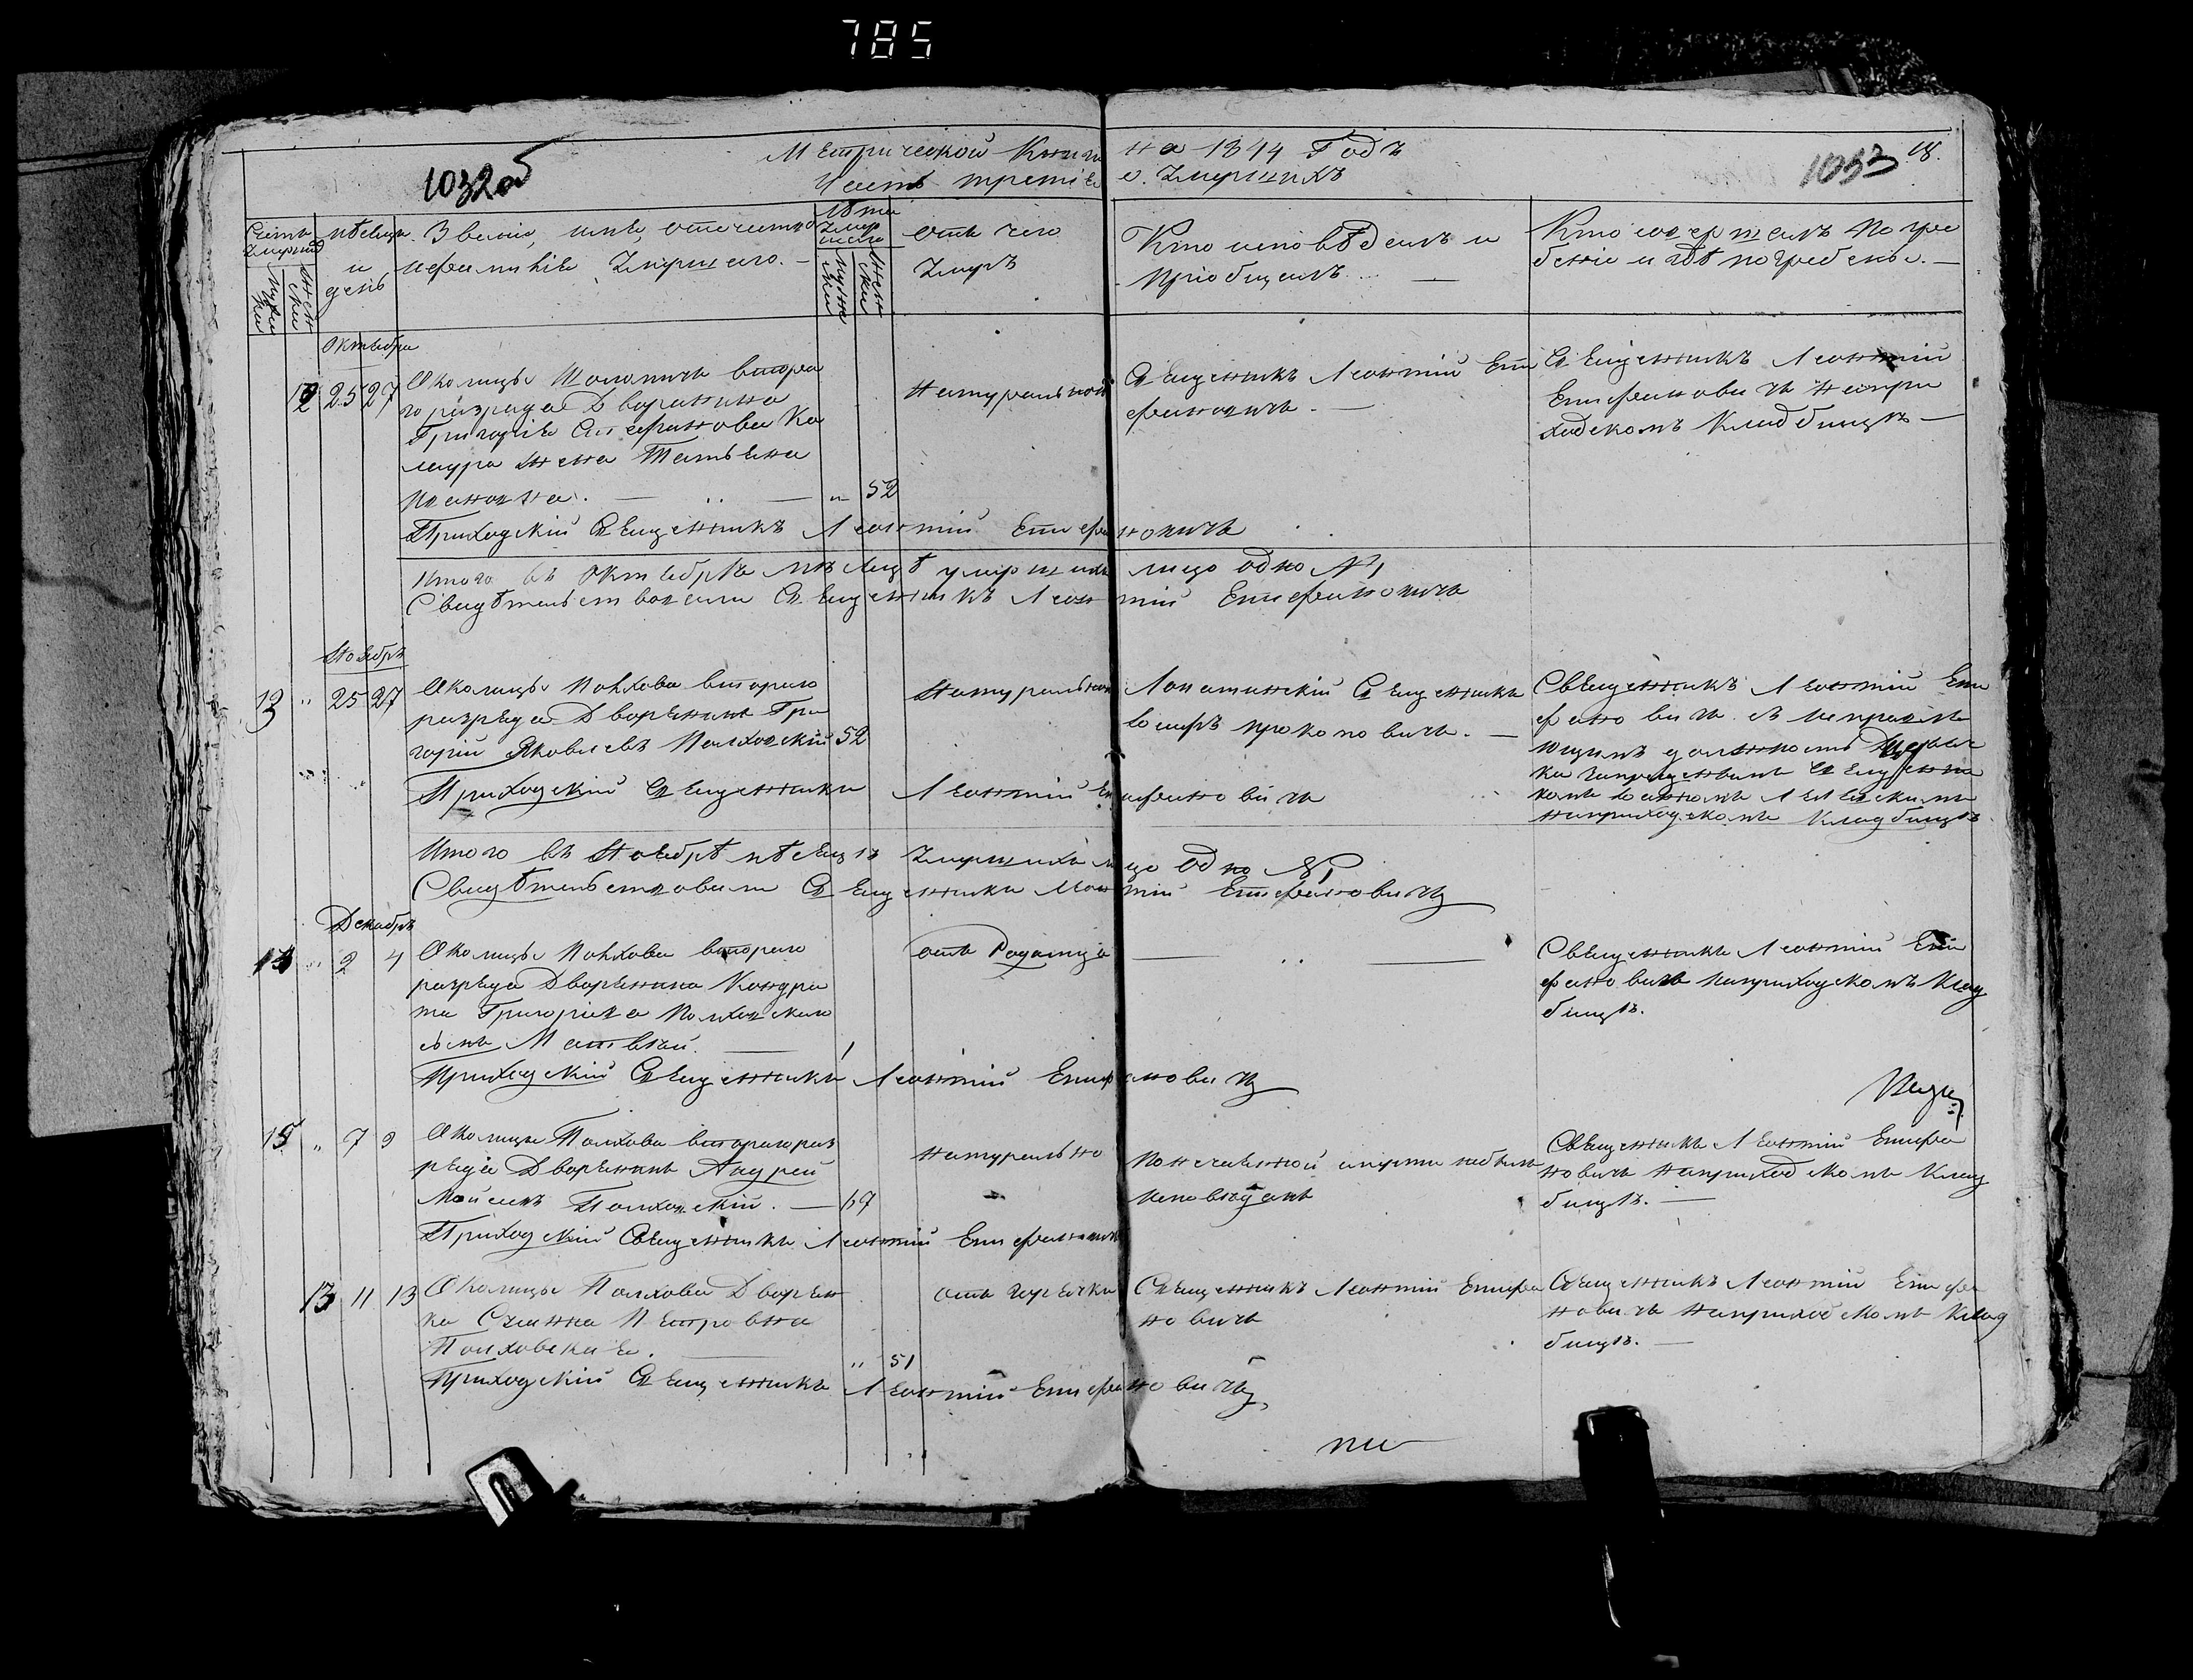 785
1032об
Метрической Книги на 1844 Годъ
1033 18.
Часть третія о Умершихъ
Счетъ Умерших
Мѣсяцъ и день
Званіе, имя, отечество
и фамилія Умершаго.
Лѣта Умершаго
отъ чего
Умеръ
Кто исповѣдалъ и
пріобщалъ. —
Кто совершалъ Погре
беніе и гдѣ погребены. —
Октября
12 25 27
Околицы второ
го разряда Дворянина
Григорія Стефанова Ка
лаура жена Татьяна
Ивановна. — 52
натуральной
Священникъ Леонтий Епи
фановичъ. —
Священникъ Леонтий
Епифановичъ на при
ходскомъ Кладбищѣ —
Приходскій Священникъ Леонтий Епифановичъ
Итого въ Октябрѣ мѣсяцѣ умершихъ лицо одно №1
Свидѣтельствовали Священникъ Леонтий Епифановичъ
Ноябрь
13 " 25 27
Околицы Полхова второго
разряда Дворянинъ Гри
горій Яковлевъ Полховскій 52
натуральной
Лопатинскій Священникъ
Іосифъ Прокоповичъ. —
Священникъ Леонтий Епи
фановичъ съ исправля
ющимъ должность
запрещеннымъ Священни
комъ
на приходскомъ Кладбищѣ
Приходскій Священникъ Леонтий Епифановичъ
Итого въ Ноябрѣ мѣсяцѣ Умершихъ лицо одно №1
Свидѣтельствовали Священникъ Леонтий Епифановичъ
Декабрь
14 " 2 4
Околицы Полхова второго
разряда Дворянина Кондра
та Григоріева Полховского
сынъ Матвѣй. — 1
отъ Родимца
— " —
Священникъ Леонтий Епи
фановичъ на приходскомъ Клад
бищѣ.
Приходскій Священникъ Леонтий Епифановичъ
15 " 7 9
Околицы Полхова второго раз
ряда Дворянинъ Андрей
Моисеевъ Полховскій. — 67
натурально
По нечаянной смерти небылъ
исповѣданъ
Священникъ Леонтий Епифа
новичъ на приходскомъ Клад
бищѣ. —
Приходскій Священникъ Леонтий Епифановичъ
13 11 13
Околицы Полхова Дворян
ка Петровна
Полховская. — " 51
отъ горячки
Священникъ Леонтий Епифа
новичъ
Священникъ Леонтий Епифа
новичъ на приходскомъ Клад
бищѣ. —
Приходскій Священникъ Леонтий Епифановичъ